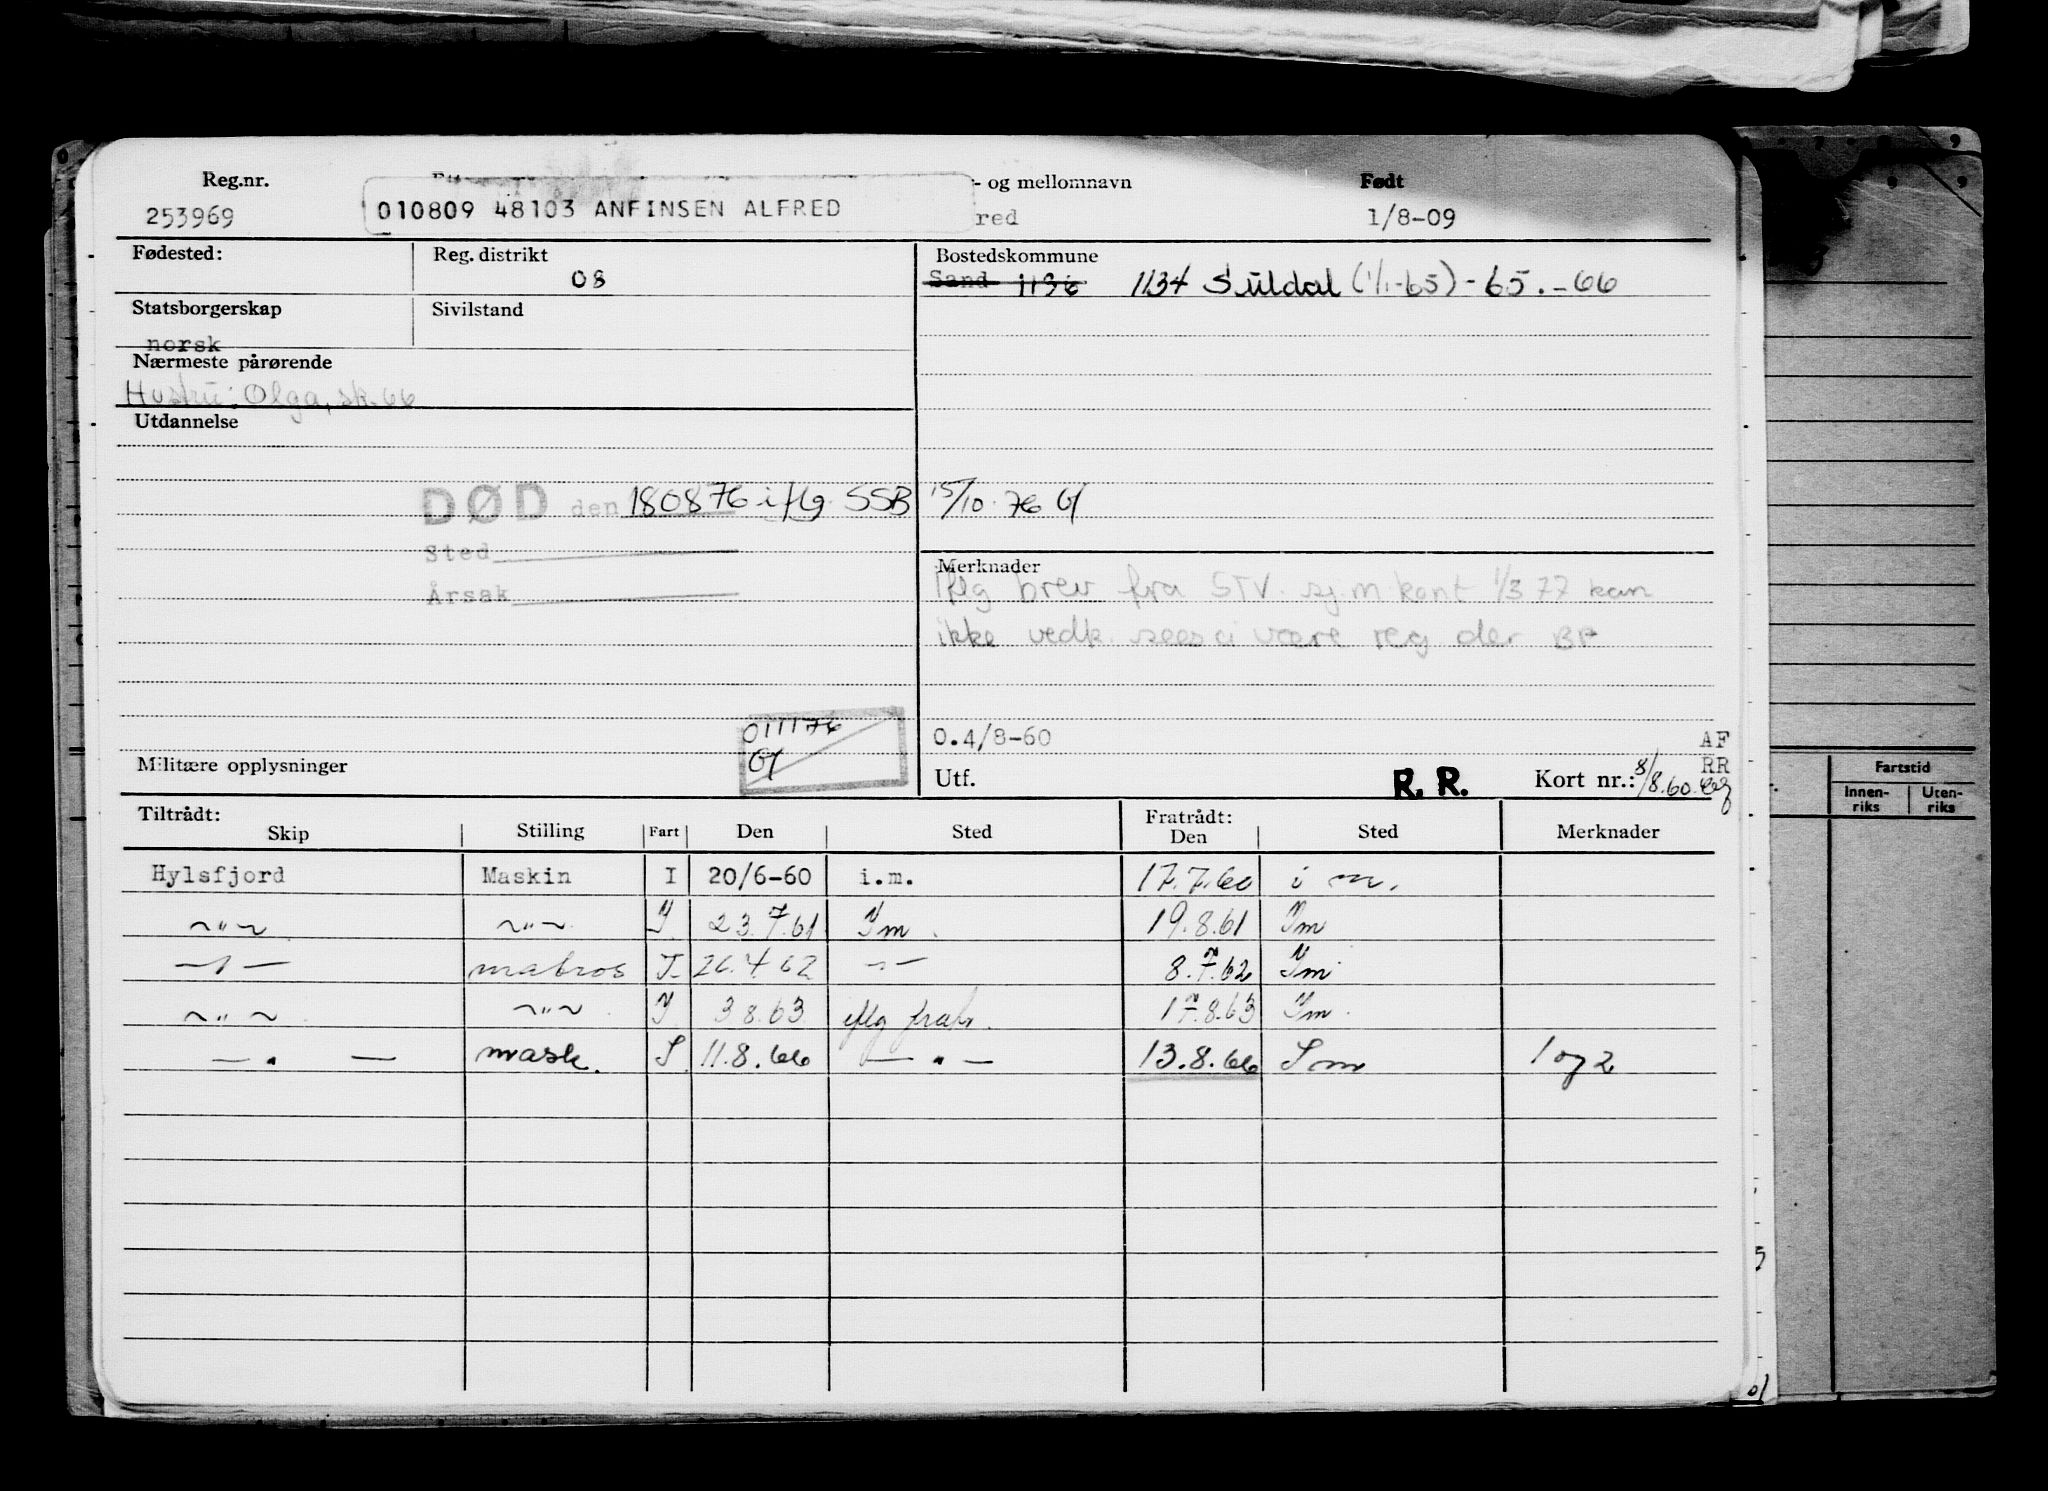 Reg.nr. - og mellomnavn Født
253969 010809 48103 ANFINSEN ALFRED red 1/8-09
Fødested: Reg. distrikt Bostedskommune
08 Sand 1136 1134 Suldal (1/1-65) - 65. - 66
Statsborgerskap Sivilstand
norsk
Nærmeste pårørende
Hustru: Olga, sk. 66
Utdannelse
DØD den 180876 iflg SSB 15/10. 76
Sted
Årsak
Merknader
Iflg brev fra STV. sj.m kont 1/3 77 kan
ikke vedk. sees å være reg der BF
011176
0.4/8-60 AF
RR
Militære opplysninger Utf. R. R. Kort nr.: 8/8.60.
Tiltrådt: Fratrådt:
Skip Stilling Fart Den Sted Den Sted Merknader
Hylsfjord Maskin I 20/6-60 i.m. 17.7.60 i m.
~"~ ~"~ I 23.7.61 Im. 19.8.61 Im
—"— matros I 26.4.62 —"— 8.7.62 Im
~"~ ~"~ I 3.8.63 iflg fratr. 17.8.63 Im.
—"— mask. I. 11.8.66 —"— 13.8.66 Im 1 og 2
Fartstid
Innen-
riks
Uten-
riks